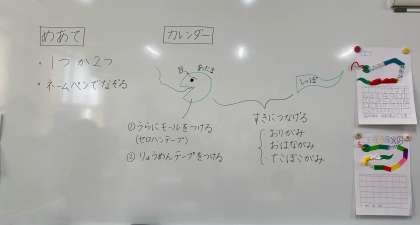 めあて
・1つか2つ
・ネームペンでなぞる
カレンダー
あたま
しっぽ
①うらにモールをつける
(セロハンテープ)
②りょうめんテープをつける
すきにつなげる
おりがみ
おはながみ
でこぼこがみ